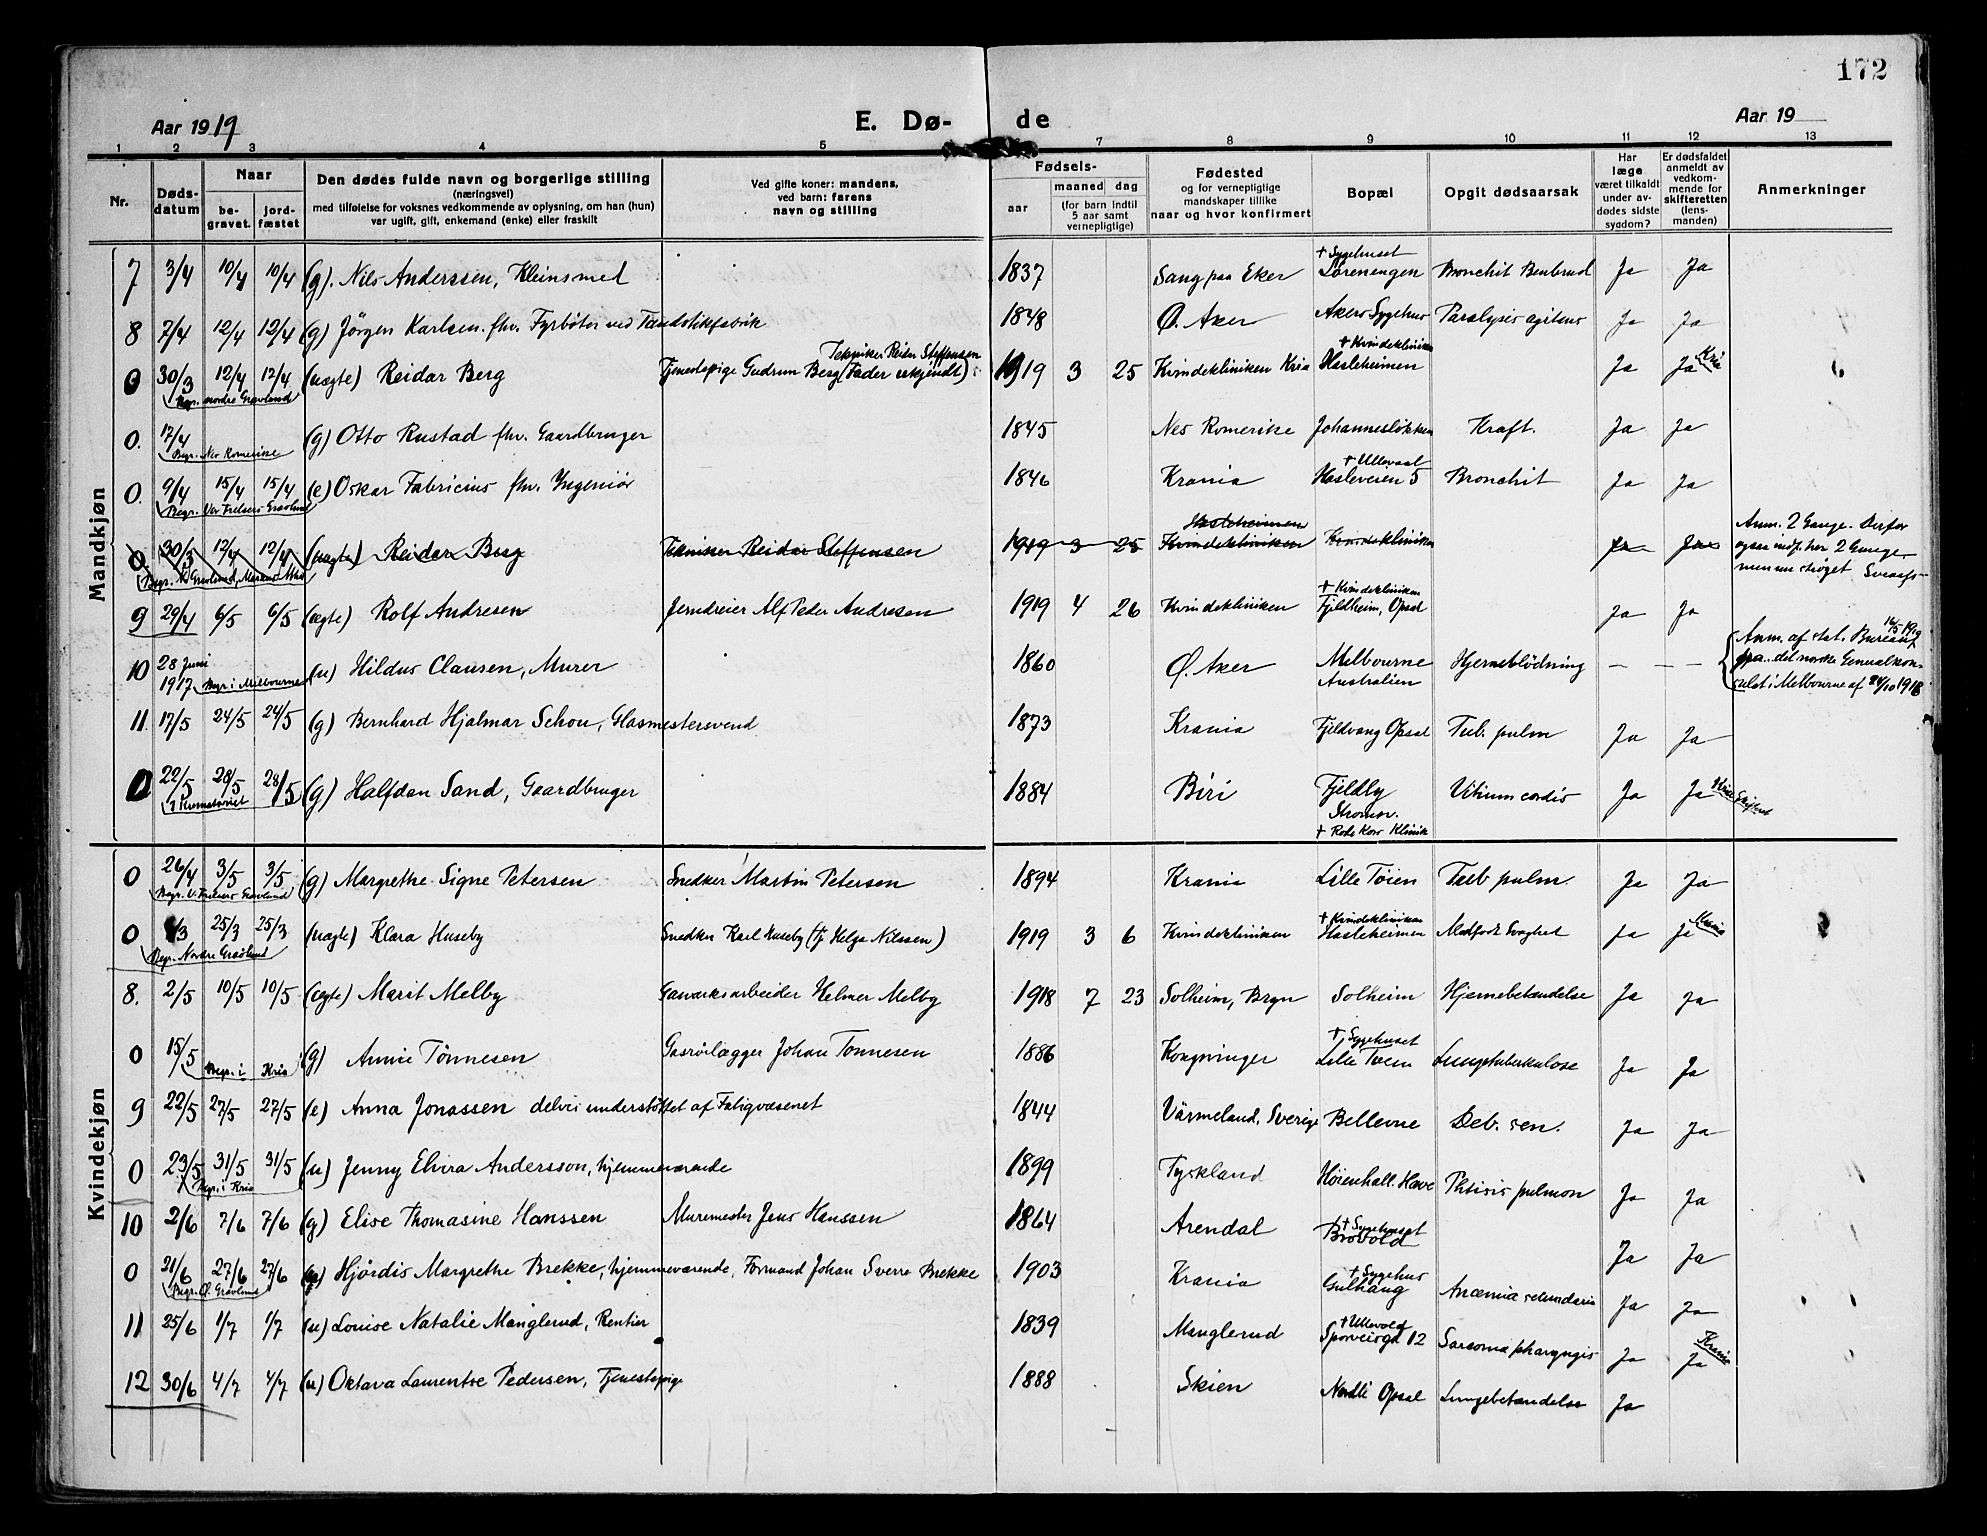 172
Aar 1919
E. Dø- de
Aar 19
1 2 3 4 5 7 8 9 10 11 12 13
Nr.
Døds-datum
Naar
be-gravet.
jord-fæstet
Den dødes fulde navn og borgerlige stilling
(næringsvei)
med tilføielse for voksnes vedkommende av oplysning, om han (hun)
var ugift, gift, enkemand (enke) eller fraskilt
Ved gifte koner: mandens,
ved barn: farens
navn og stilling
Fødsels-
aar
maaned dag
(for barn indtil
5 aar samt
vernepligtige)
Fødested
og for vernepligtige
mandskaper tillike
naar og hvor konfirmert
Bopæl
Opgit dødsaarsak
Har
læge
været tilkaldt
under av-
dødes sidste
sygdom?
Er dødsfaldet
anmeldt av
vedkom-
mende for
skifteretten
(lens-
manden)
Anmerkninger
Mandkjøn
7 3/4 10/4 10/4 (g). Nils Anderssen, Kleinsmed 1837 Sang paa Eker + Sygehuset Lörenengen Bronchit Benbrud Ja Ja
8 7/4 12/4 12/4 (g) Jörgen Karlsen. fhv. Fyrböter ved Tændstikfabrik 1848 Ø. Aker Akers Sygehus Paralysis agitans Ja Ja
0 30/3 12/4 12/4 (uægte) Reidar Berg Tjenestepige Gudrun Berg (Tekniker Reidar Steffensen Fader erkjendt) 1919 3 25 Kvindekliniken Kria + Kvindekliniken Hasleheimen Ja Ja Kria
Begr. nordre Gravlund
0. 17/4 (g) Otto Rustad fhv. Gaardbruger 1845 Nes Romerike Johannesløkken Kraft. Ja Ja
Begr. Nes Romerike
0. 9/4 15/4 15/4 (e) Oskar Fabricius fhv. Ingeniör 1846 Krania + Ullevaal Hasleveien 5 Bronchit Ja Ja
Begr. Vor Frelsers Gravlund
0 30/3 12/4 12/4 (uægte) Reidar Berg Tekniker Reidar Steffensen 1919 3 25 Hasleheimen Kvindekliniken Kvindekliniken Ja Ja Anm. 2 Gange. Derfor
ogsaa indf. her 2 Gange
9 29/4 6/5 6/5 (ægte) Rolf Andresen Jerndreier Alf Peder Andresen 1919 4 26 Kvindekliniken + Kvindekliniken Fjeldheim, Opsal Ja Ja
10 28 Juni 1917 Begr. i Melbourne (u) Hildus Clausen, Murer 1860 Ø. Aker Melbourne Australien Hjerneblödning — — — Anm. af stat. Bureau 14/5 1919
fra det norske Generalkon-
sulat i Melbourne af 24/10 1918
11. 17/5 24/5 24/5 (g) Bernhard Hjalmar Schou, Glasmestersvend 1873 Krania Fjeldvang Opsal Tub. pulm Ja Ja
0 22/5 28/5 28/5 (g) Halfdan Sand, Gaardbruger 1884 Biri Fjeldby Stromsv. + Röde Kors Klinik Vitium cordis Ja Ja Kria Skifteret
i Krematoriet
Kvindekjøn
0 26/4 3/5 3/5 (g) Margrethe Signe Petersen Snedker Martin Petersen 1894 Krania Lille Töien Tub pulm. Ja Ja
Begr. V. Frelsers Gravlund
0 /3 25/3 25/3 (uægte) Klara Huseby Snedker Karl Huseby (Tj Helga Nilssen) 1919 3 6 Kvindekliniken + Kvindekliniken Hasleheimen Medfødt Svaghet Ja Ja Krania
Begr. Nordre Gravlund
8. 2/5 10/5 10/5 (ægte) Marit Melby Gasværksarbeider Helmer Melby 1918 7 23 Solheim, Bryn Solheim Hjernebetændelse Ja Ja
0 15/5 Begr. i Kria (g) Annie Tönnesen Gasrörlægger Johan Tönnesen 1886 Kongsvinger + Sygehuset Lille Töien Lungetuberkulose Ja Ja
9 22/5 27/5 27/5 (e) Anna Jonassen delvis understöttet af Fatigvæsenet 1844 Värmeland, Sverige Bellevue Deb. sen. Ja Ja
0 23/5 31/5 31/5 (u) Jenny Elvira Andersson, hjemmeværende 1899 Tyskland Höienhall. Have Phtisis pulmon Ja Ja
Begr. i Kria
10 2/6 7/6 7/6 (g) Elise Thomasine Hanssen Muremester Jens Hanssen 1864 Arendal + Sygehuset Brovold Ja Ja
0 21/6 27/6 27/6 Hjördis Margrethe Brekke, hjemmeværende, Formand Johan Sverre Brekke 1903 Krania + Sygehus Gulhaug Anæmia secundaria Ja Ja
Begr. Ø. Gravlund
11 25/6 1/7 1/7 (u) Louise Natalie Manglerud, Rentier 1839 Manglerud + Ullevold Sporveisgd 12 Sarcoma pharyngis Ja Ja Krania
12 30/6 4/7 4/7 (u) Oktava Laurentse Pedersen, Tjenestepige 1888 Skien Nordli Opsal Lungebetændelse Ja